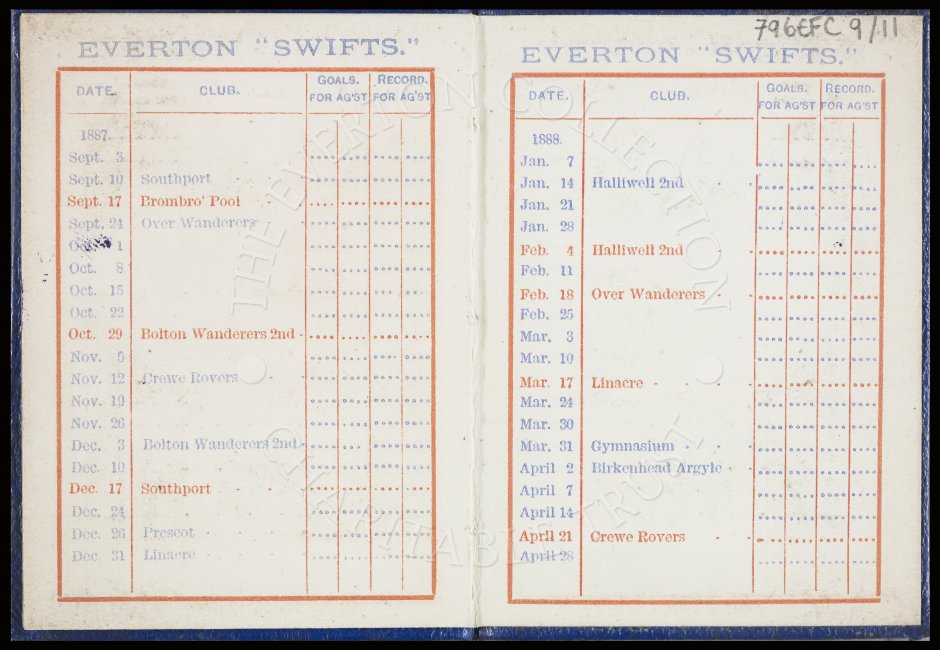 796EFC 9/11
EVERTON "SWIFTS."
DATE. CLUB. GOALS. RECORD.
FOR AG'ST FOR AG'ST
1887.
Sept. 3
Sept. 10 Southport
Sept. 17 Brombro' Pool
Sept. 24 Over Wanderers
Oct. 1
Oct. 8
Oct. 15
Oct. 22
Oct. 29 Bolton Wanderers 2nd
Nov. 5
Nov. 12 Crewe Rovers
Nov. 19
Nov. 26
Dec. 3 Bolton Wanderers 2nd
Dec. 10
Dec. 17 Southport
Dec. 24
Dec. 26 Prescot
Dec. 31 Linacre
EVERTON "SWIFTS."
DATE. CLUB. GOALS. RECORD.
FOR AG'ST FOR AG'ST
1888.
Jan. 7
Jan. 14 Halliwell 2nd
Jan. 21
Jan. 28
Feb. 4 Halliwell 2nd
Feb. 11
Feb. 18 Over Wanderers
Feb. 25
Mar. 3
Mar. 10
Mar. 17 Linacre
Mar. 24
Mar. 30
Mar. 31 Gymnasium
April 2 Birkenhead Argyle
April 7
April 14
April 21 Crewe Rovers
April 28
THE EVERTON COLLECTION
CHARITABLE TRUST